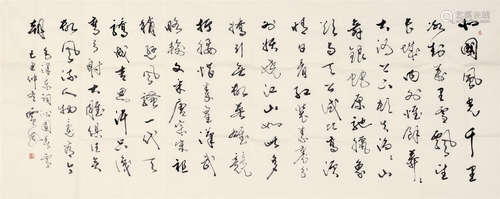 北國風光千里
冰封萬里雪飄望
長城内外惟餘莽莽
大河上下頓失滔滔山
舞銀蛇原馳蠟象
欲與天公試比高須
晴日看紅裝素裹分
外妖嬈江山如此多
嬌引無數英雄競
折腰惜秦皇漢武
略輸文采唐宗宋祖
稍遜風騷一代天
驕成吉思汗只識
彎弓射大雕俱往矣
數風流人物還看今
朝 毛澤東詞沁園春雪
己丑仲冬